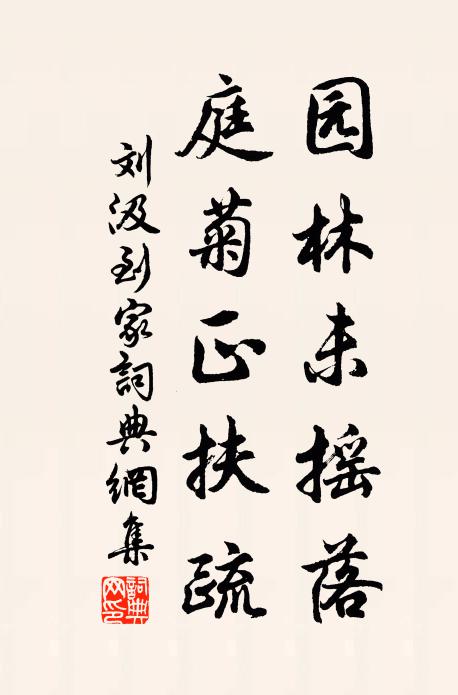 园林未摇落
庭菊正扶疏
刘汲到家詞典網集
詞典网印